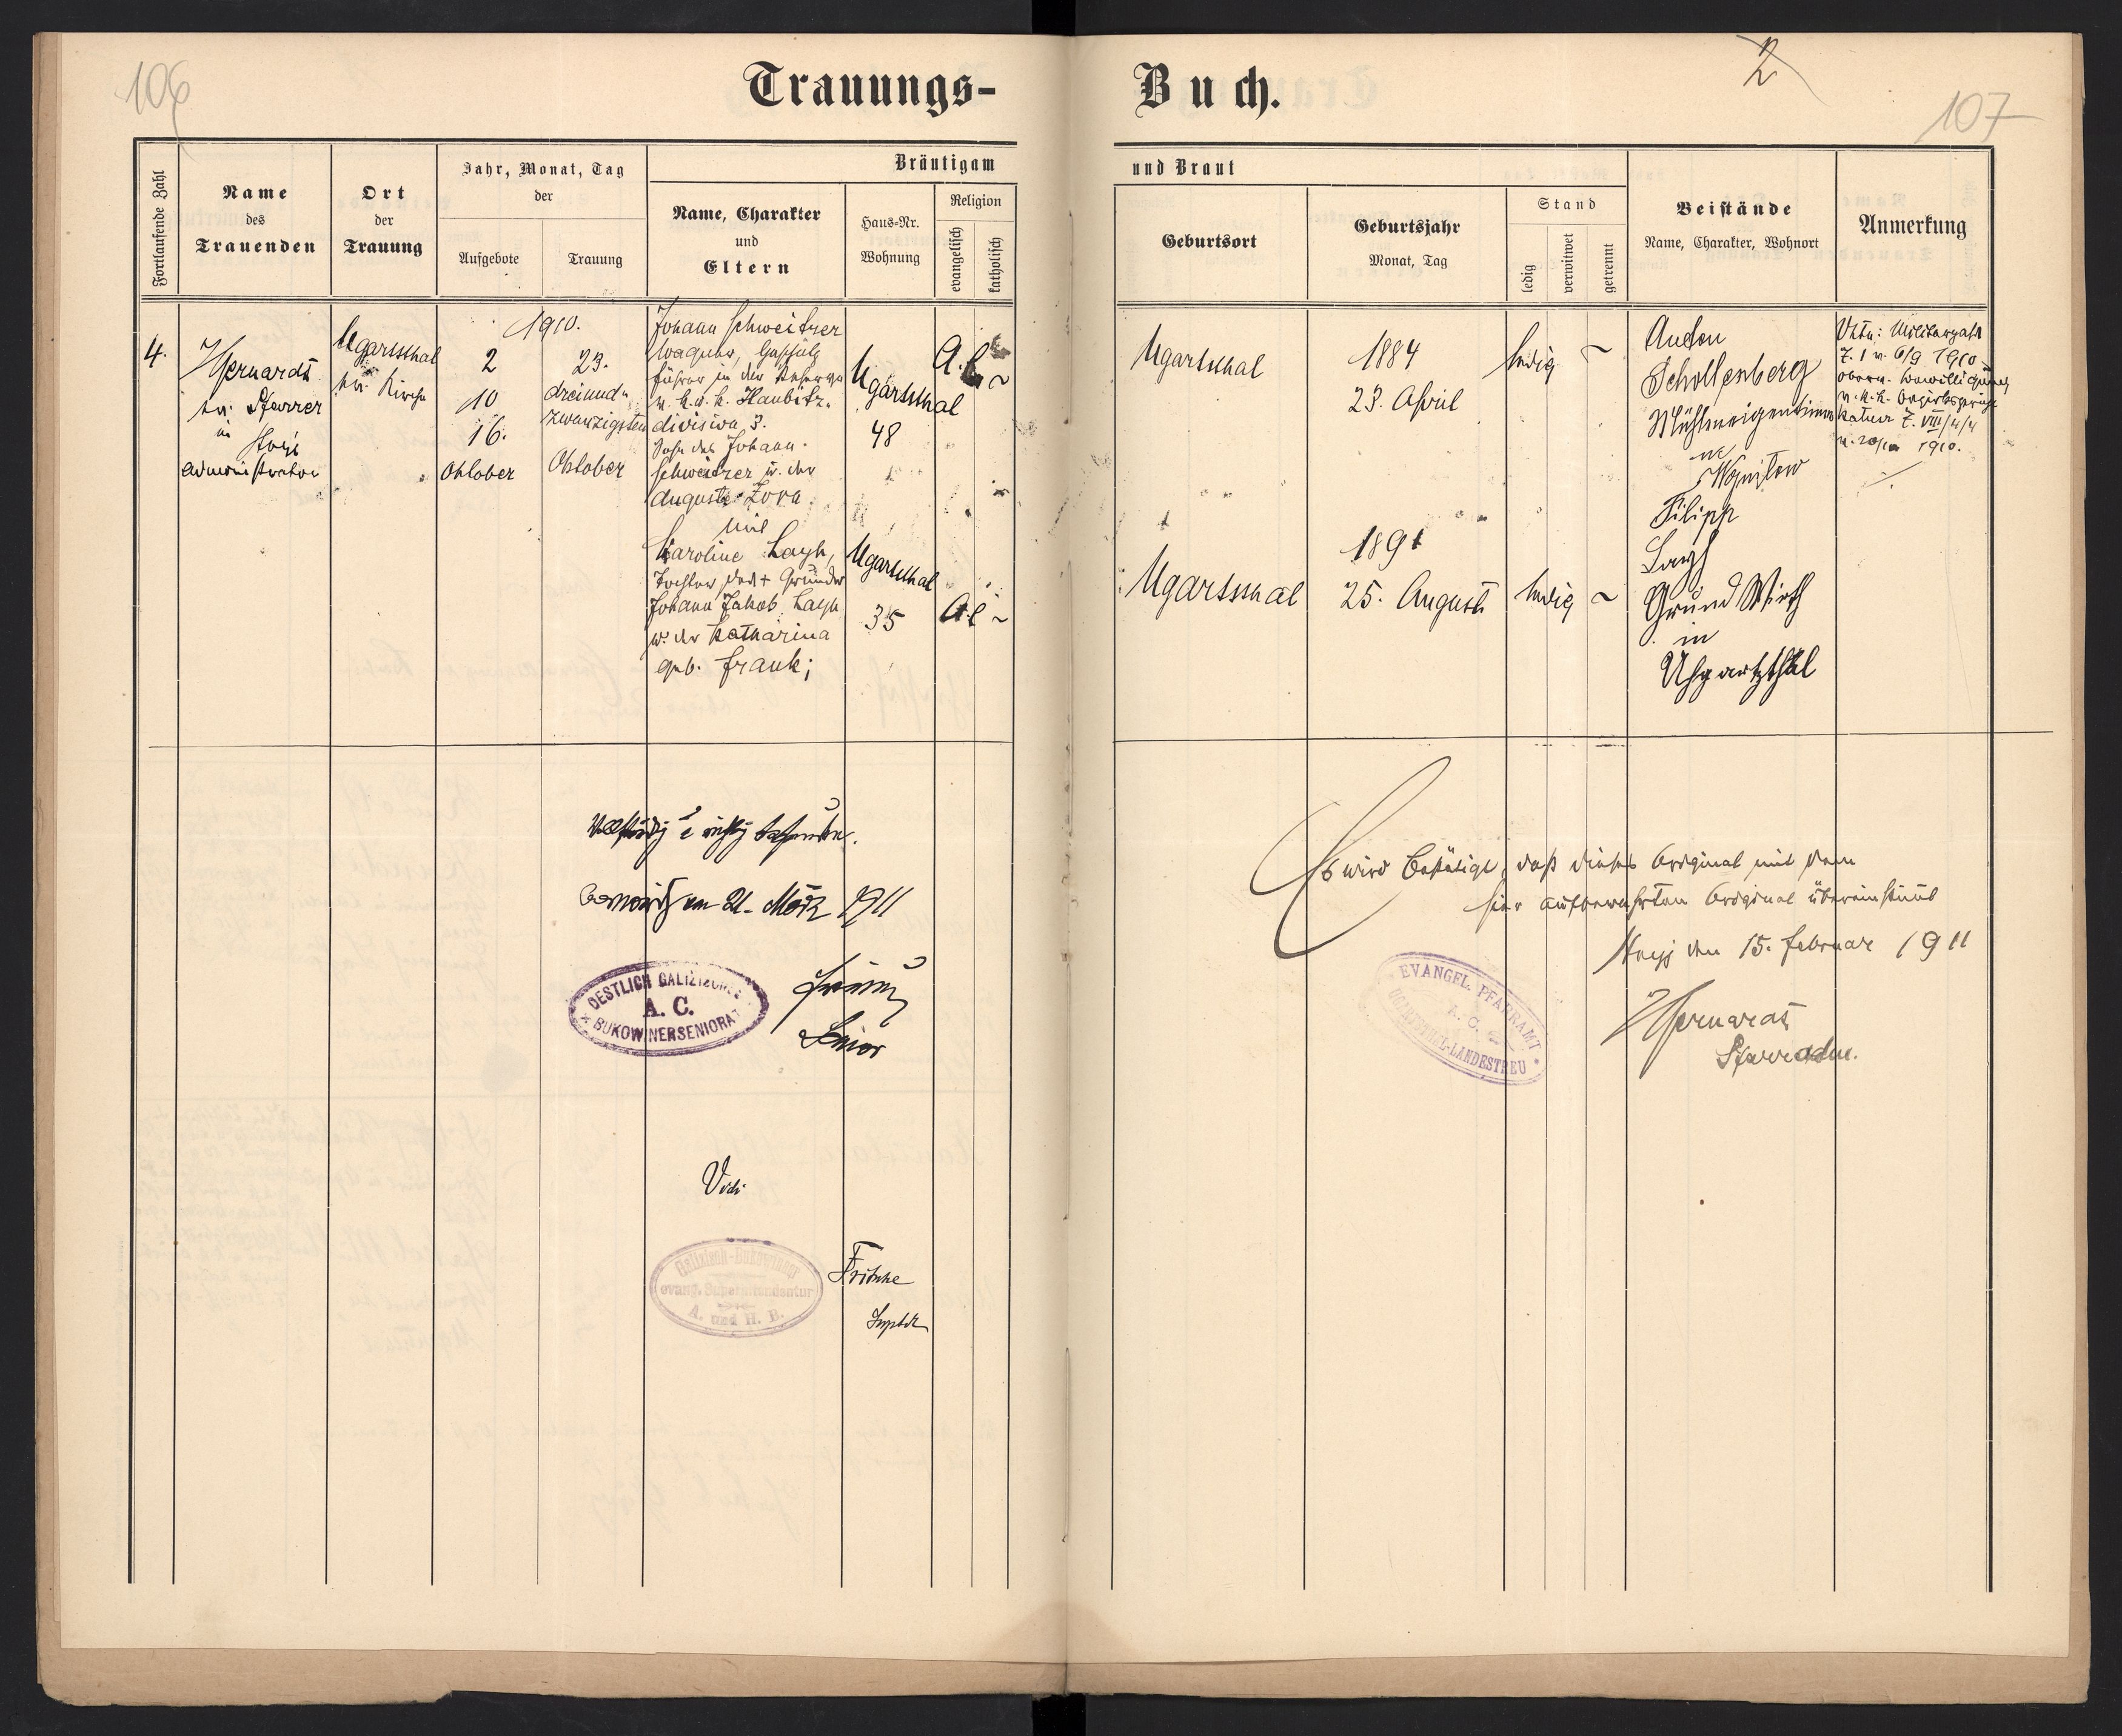 106
Trauungs-
Buch.
2
107
Fortlaufende Zahl
Name
des
Trauenden
Ort
der
Trauung
Jahr, Monat, Tag
der
Aufgebote
Trauung
Bräutigam
Name, Charakter
und
Eltern
Haus-Nr.
Wohnung
Religion
evangelisch
katholisch
und Braut
Geburtsort
Geburtsjahr
Monat, Tag
Stand
ledig
verwitwet
getrennt
Beistände
Name, Charakter, Wohnort
Anmerkung
4.
ev. Pfarrer
in
Stryj
administrator
Ugartsthal
ev. Kirche
1910.
2
10
16.
Oktober
23.
dreiund-
zwanzigsten
Oktober
Johann Schweitzer
Wagner,
führer in der Reserve
u. k. u. k. Haubitz-
division 3.
Sohn des Johann
Schweitzer u. der
Auguste Zora.
mit
Karoline Layh,
Tochter des +
Johann Jakob Layh
u. der Katharina
geb. Frank;
Ugartsthal
48
Ugartsthal
35
A.C.
A.C.
~
~
Ugartsthal
1884
23. April
ledig
~
Ugartsthal
1891
25. August
ledig
~
Anton
Schollenberg
Mühleneigentümer
in
Filipp
Layh
Grund Wirth
in
Uhgartzthal
1910
1910.
Vollständig & richtig befunden.
am 21. März 1911
OESTLICH GALIZISCHES
A. C.
BUKOWINERSENIORAT
Senior
Vidi
Galizisch-Bukowiner
evang. Superintendentur
A. und H. B.
Fritsche
Suptdt
Es wird bestätigt, daß dieses Original mit dem
hier aufbewahrten Original übereinstimmt
Stryj den 15. Februar 1911
EVANGEL. PFARRAMT
A. C.
UGARTSTHAL-LANDESTREU
Pfarradm.